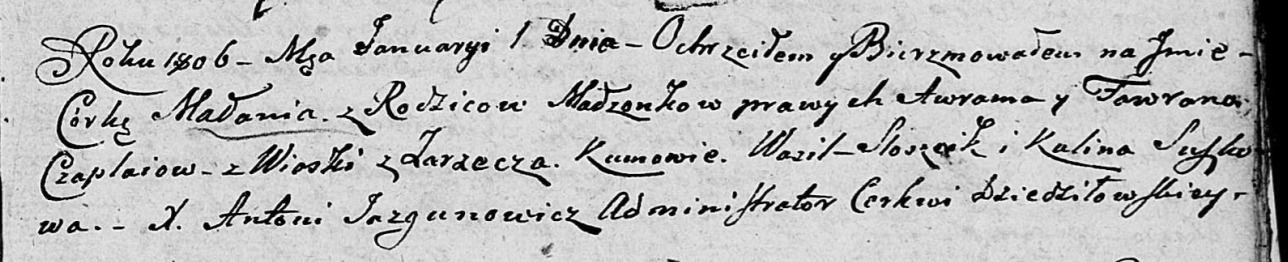 Roku 1806 - Mca Januaryi 1 Dnia - Ochrzciłem y Bierzmowałem na Jmie -
Córkę Małania. z Rodzicow Małżonkow prawych Awrama y
Czaplaiow - z Wioski z Zarzecza. Kumowie. Wasil - Słoszczik i Kalina Suszko
wa. - X. Antoni Jazgunowicz Administrator Cerkwi Dziedziłowskiey -